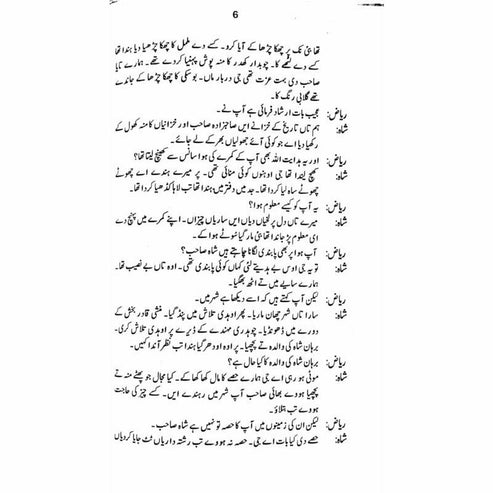 6
تھا بئی نک پر چھکا چڑھا کے آیا کرو۔ کسے دے ململ کا چھکا چڑھیا دیا ہندا تھا
کسے دے لٹھے کا۔ چوبدار کھدر کا منہ پوش پہنیا کردے تھے۔ ہمارے تایا
صاحب دی بہت عزت تھی جی دربار ماں۔ بوسکی کا چھکا چڑھا کے جاندے
تھے گلابی رنگ کا۔
ریاض: عجیب بات ارشاد فرمائی ہے آپ نے۔
شاہ: ہم تاں تاریخ کے خزانے ایں صاحبزادہ صاحب اور خزانیاں کا منہ کھول کے
رکھیا دیا اے جو کوئی آئے جھولیاں بھر کے لے جائے۔
ریاض: اور یہ ہدایت اللہ بھی آپ کے کمرے کی ہوا سانس سے کھینچ لیتا تھا؟
شاہ: کھچ لیندا تھا جی اوہنوں کوئی منائی تھی۔ پر میرے ہندے اے چھوٹے
چھوٹے ساہ لیا کردا تھا۔ جد میں دفتر میں ہندا تھا تب لاہا کڈھیا کردا تھا۔
ریاض: یہ آپ کو کیسے معلوم ہوا؟
شاہ: میرے تاں دل پر لکھیاں دیاں ایں ساریاں چیزاں۔ اپنے کمرے میں پہنچ دے
ای معلوم پڑ جاندا تھا بئی مار گیا سوٹے ہوا کے۔
ریاض: آپ ہوا پر بھی پابندی لگانا چاہتے ہیں شاہ صاحب؟
شاہ: تو یہ جی اوس بے ہدیتے لئی کہاں کوئی پابندی تھی۔ اوہ تاں بے نصیب تھا۔
ہمارے سایے میں تے اٹھ بھگیا۔
ریاض: لیکن آپ کہتے ہیں کہ اسے دیکھا ہے شہر میں۔
شاہ: سارا تاں شہر چھان ماریا۔ پھر اوہدی تلاش میں پنڈ گیا۔ منشی قادر بخش کے
دورے میں ڈھونڈیا۔ چوہدری مہندے کے ڈیرے پر اوہدی تلاش کری۔
برہان شاہ کی والدہ تے پچھیا۔ پر اوہ اودھر گیا ہندا تب نظر آندا کہیں۔
ریاض: برہان شاہ کی والدہ کا کیا حال ہے؟
شاہ: موٹی ہو رہی اے جی ہمارے حصے کا مال کھا کھا کے۔ کیا مجال جو پھٹے منہ تے
پچھیا ہووے بھائی صاحب آپ شہر میں رہندے ایں۔ کسے چیز کی حاجت
ہووے تب بتلاؤ۔
ریاض: لیکن ان کی زمینوں میں آپ کا حصہ تو نہیں ہے شاہ صاحب۔
شاہ: حصے دی کیا بات اے جی۔ حصہ نہ ہووے تب رشتہ داریاں ٹٹ جایا کردیاں